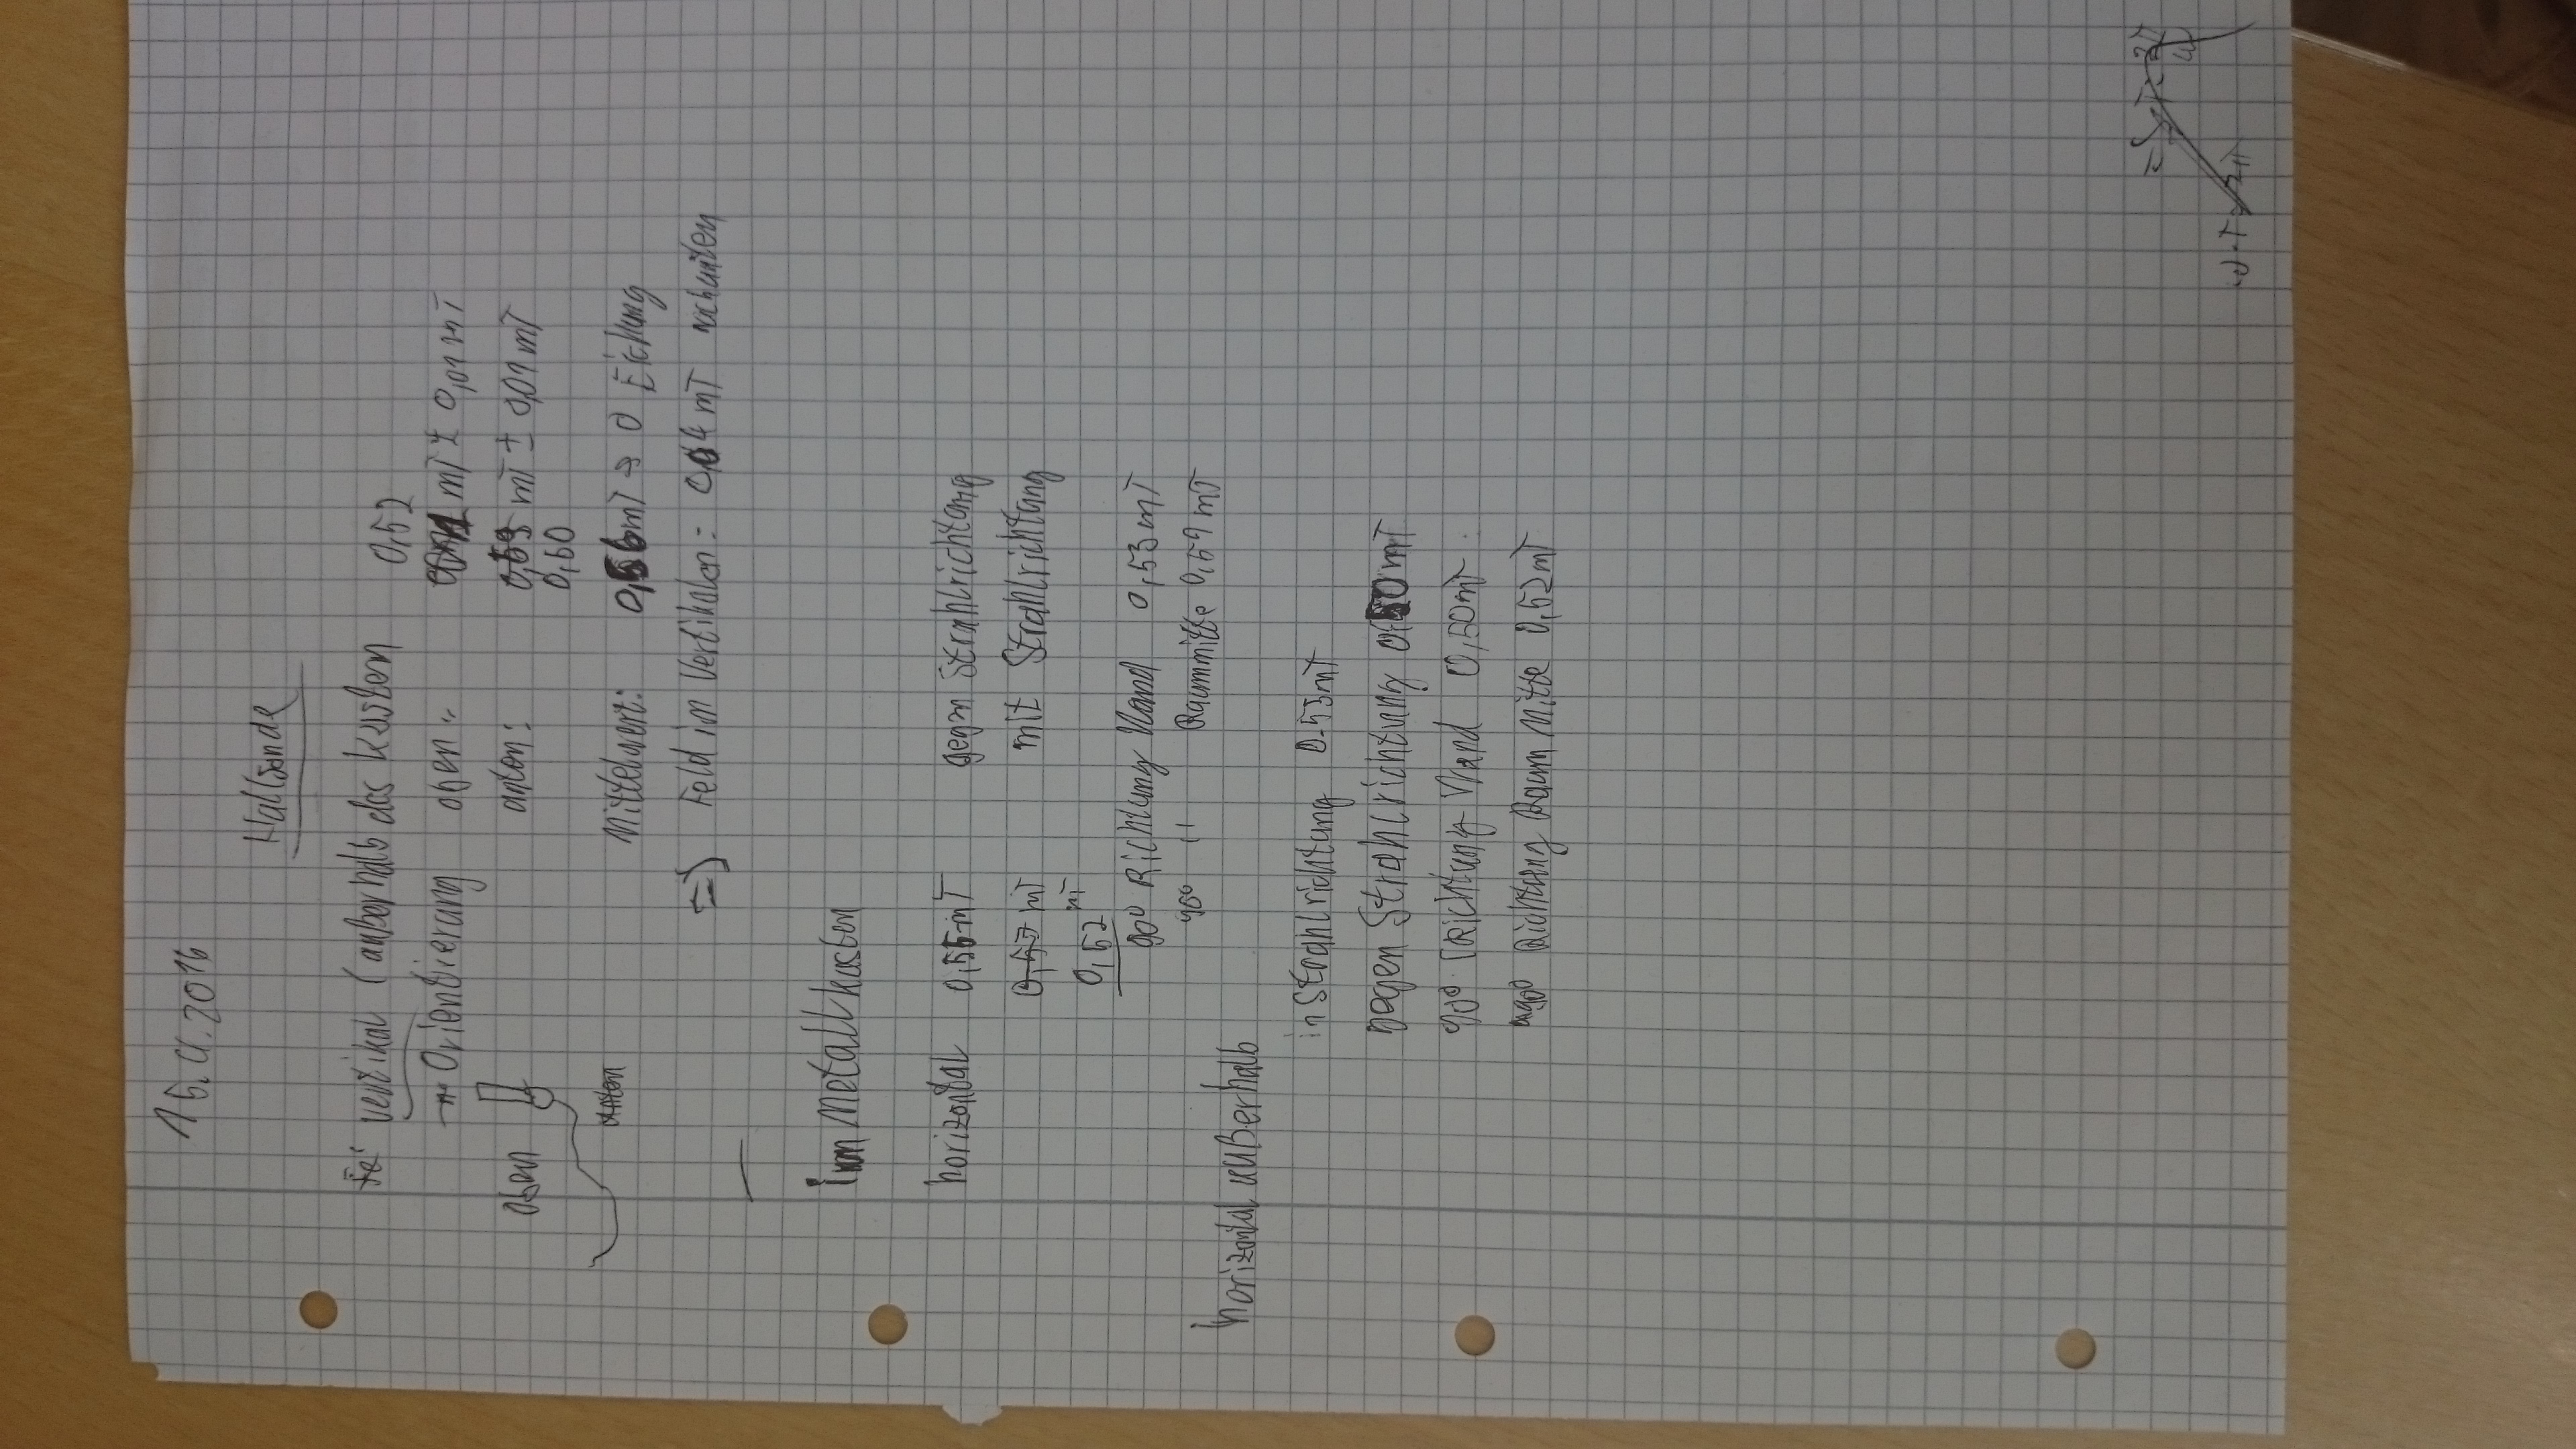 15.4.2016
Hallsonde
vertikal (außerhalb des Kasten
0,52
→ Orientierung oben: mT ± 0,01 mT
oben
unten: 0,59 mT ± 0,01 mT
0,60
unten
Mittelwert: 0,56 mT → 0 Eichung
=> Feld im Vertikalen = 0,04 mT nach unten
im Metallkasten
horizontal 0,55 mT gegen Strahlrichtung
0,57 mT mit Strahlrichtung
0,52 mT
90° Richtung Wand 0,53 mT
90° " Raummitte 0,51 mT
horizontal außerhalb
in Strahlrichtung 0.53 mT
gegen Strahlrichtung 0,50 mT
90° Richtung Wand 0,50 mT
90° Richtung Raum Mitte 0,52 mT
=> T = 2π
ω
ω·T = 2π